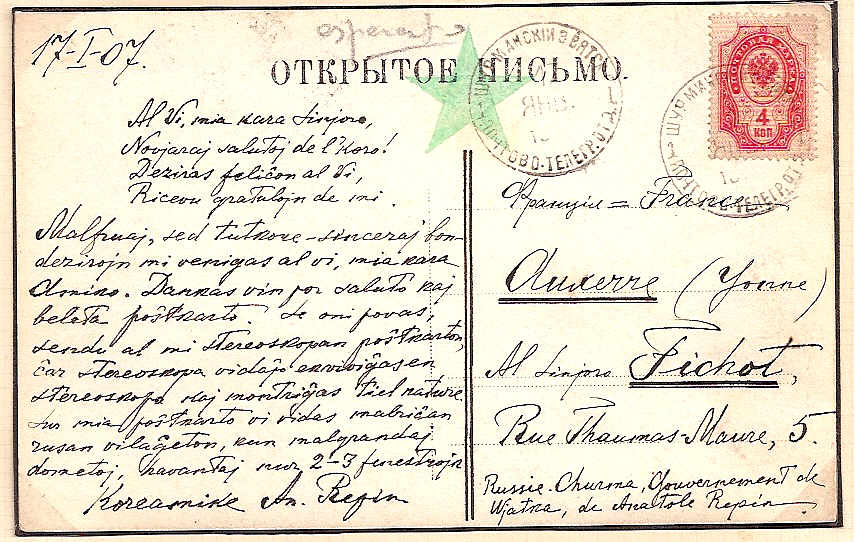 esperanto
17-I-07.
ОТКРЫТОЕ ПИСЬМО.
ПОЧТОВАЯ МАРКА
4
КОП
ЯНВ.
ПОЧТОВО-ТЕЛЕГР. ОТ
Al Vi, mia kara Sinjoro,
Novjaraj salutoj de l'Koro!
Deziras feliĉon al Vi,
Ricevu gratulojn de mi.
Malfruaj, sed tutkore-sinceraj bon-
dezirojn mi venigas al vi, mia kara
Amiko. Dankas vin por saluto kaj
belota poŝtkarto. Se oni povas,
sendu al mi stereoskopan poŝtkarton,
ĉar stereoskopa vidaĵo enviviĝas en
stereoskopo kaj montriĝas tiel nature
Sur mia poŝtkarto vi vidas malriĉan
rusan vilaĝeton, kun malgrandaj
dometoj, havantaj nur 2-3 fenestrojn
Koreamike An. Repin
Франція = France
Auxerre (Yonne)
Al Sinjoro Fichot,
Rue Thaumas-Maure, 5.
Russie. Churma, Gouvernement de
Wjatka, de Anatole Repin.